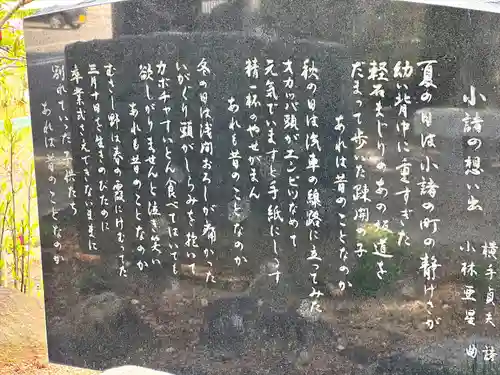 小諸の想い出
横手貞夫 詩
小林亜星 曲
夏の日は小諸の町の静けさが
幼い背中に重すぎた
軽石まじりのあの坂道を
だまって歩いた疎開っ子
あれは昔のことなのか
秋の日は汽車の線路に立ってみた
オカッパ頭がエンピツなめて
元気でいますと手紙にしるす
精一杯のやせがまん
あれも昔のことなのか
冬の日は浅間おろしが痛かった
いがぐり頭がしらみを抱いて
カボチャでいとん食べてはいても
欲しがりませんと泣き笑い
あれも昔のことなのか
むさし野は春の霞にけむってた
三月十日を生きのびたのに
卒業式さえできないままに
別れていった子供たち
あれは昔のことなのか